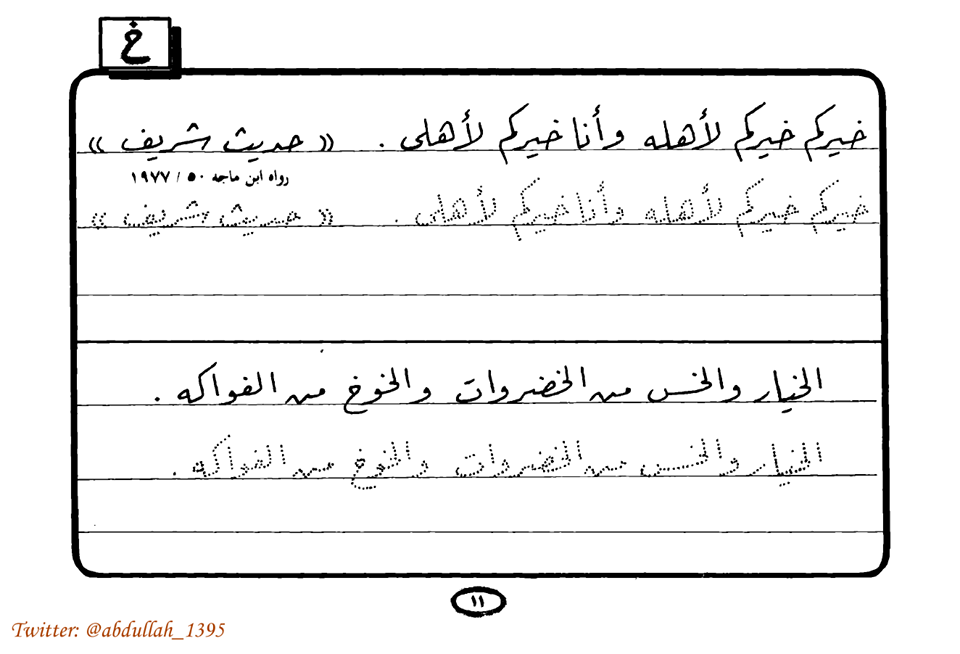 خ
خيركم خيركم لأهله وأنا خيركم لأهلى . « حديث شريف »
رواه ابن ماجه ٥٠ / ١٩٧٧
خيركم خيركم لأهله وأنا خيركم لأهلى . « حديث شريف »
الخيار والخس من الخضروات والخوخ من الفواكه .
الخيار والخس من الخضروات والخوخ من الفواكه .
١١
Twitter: @abdullah_1395